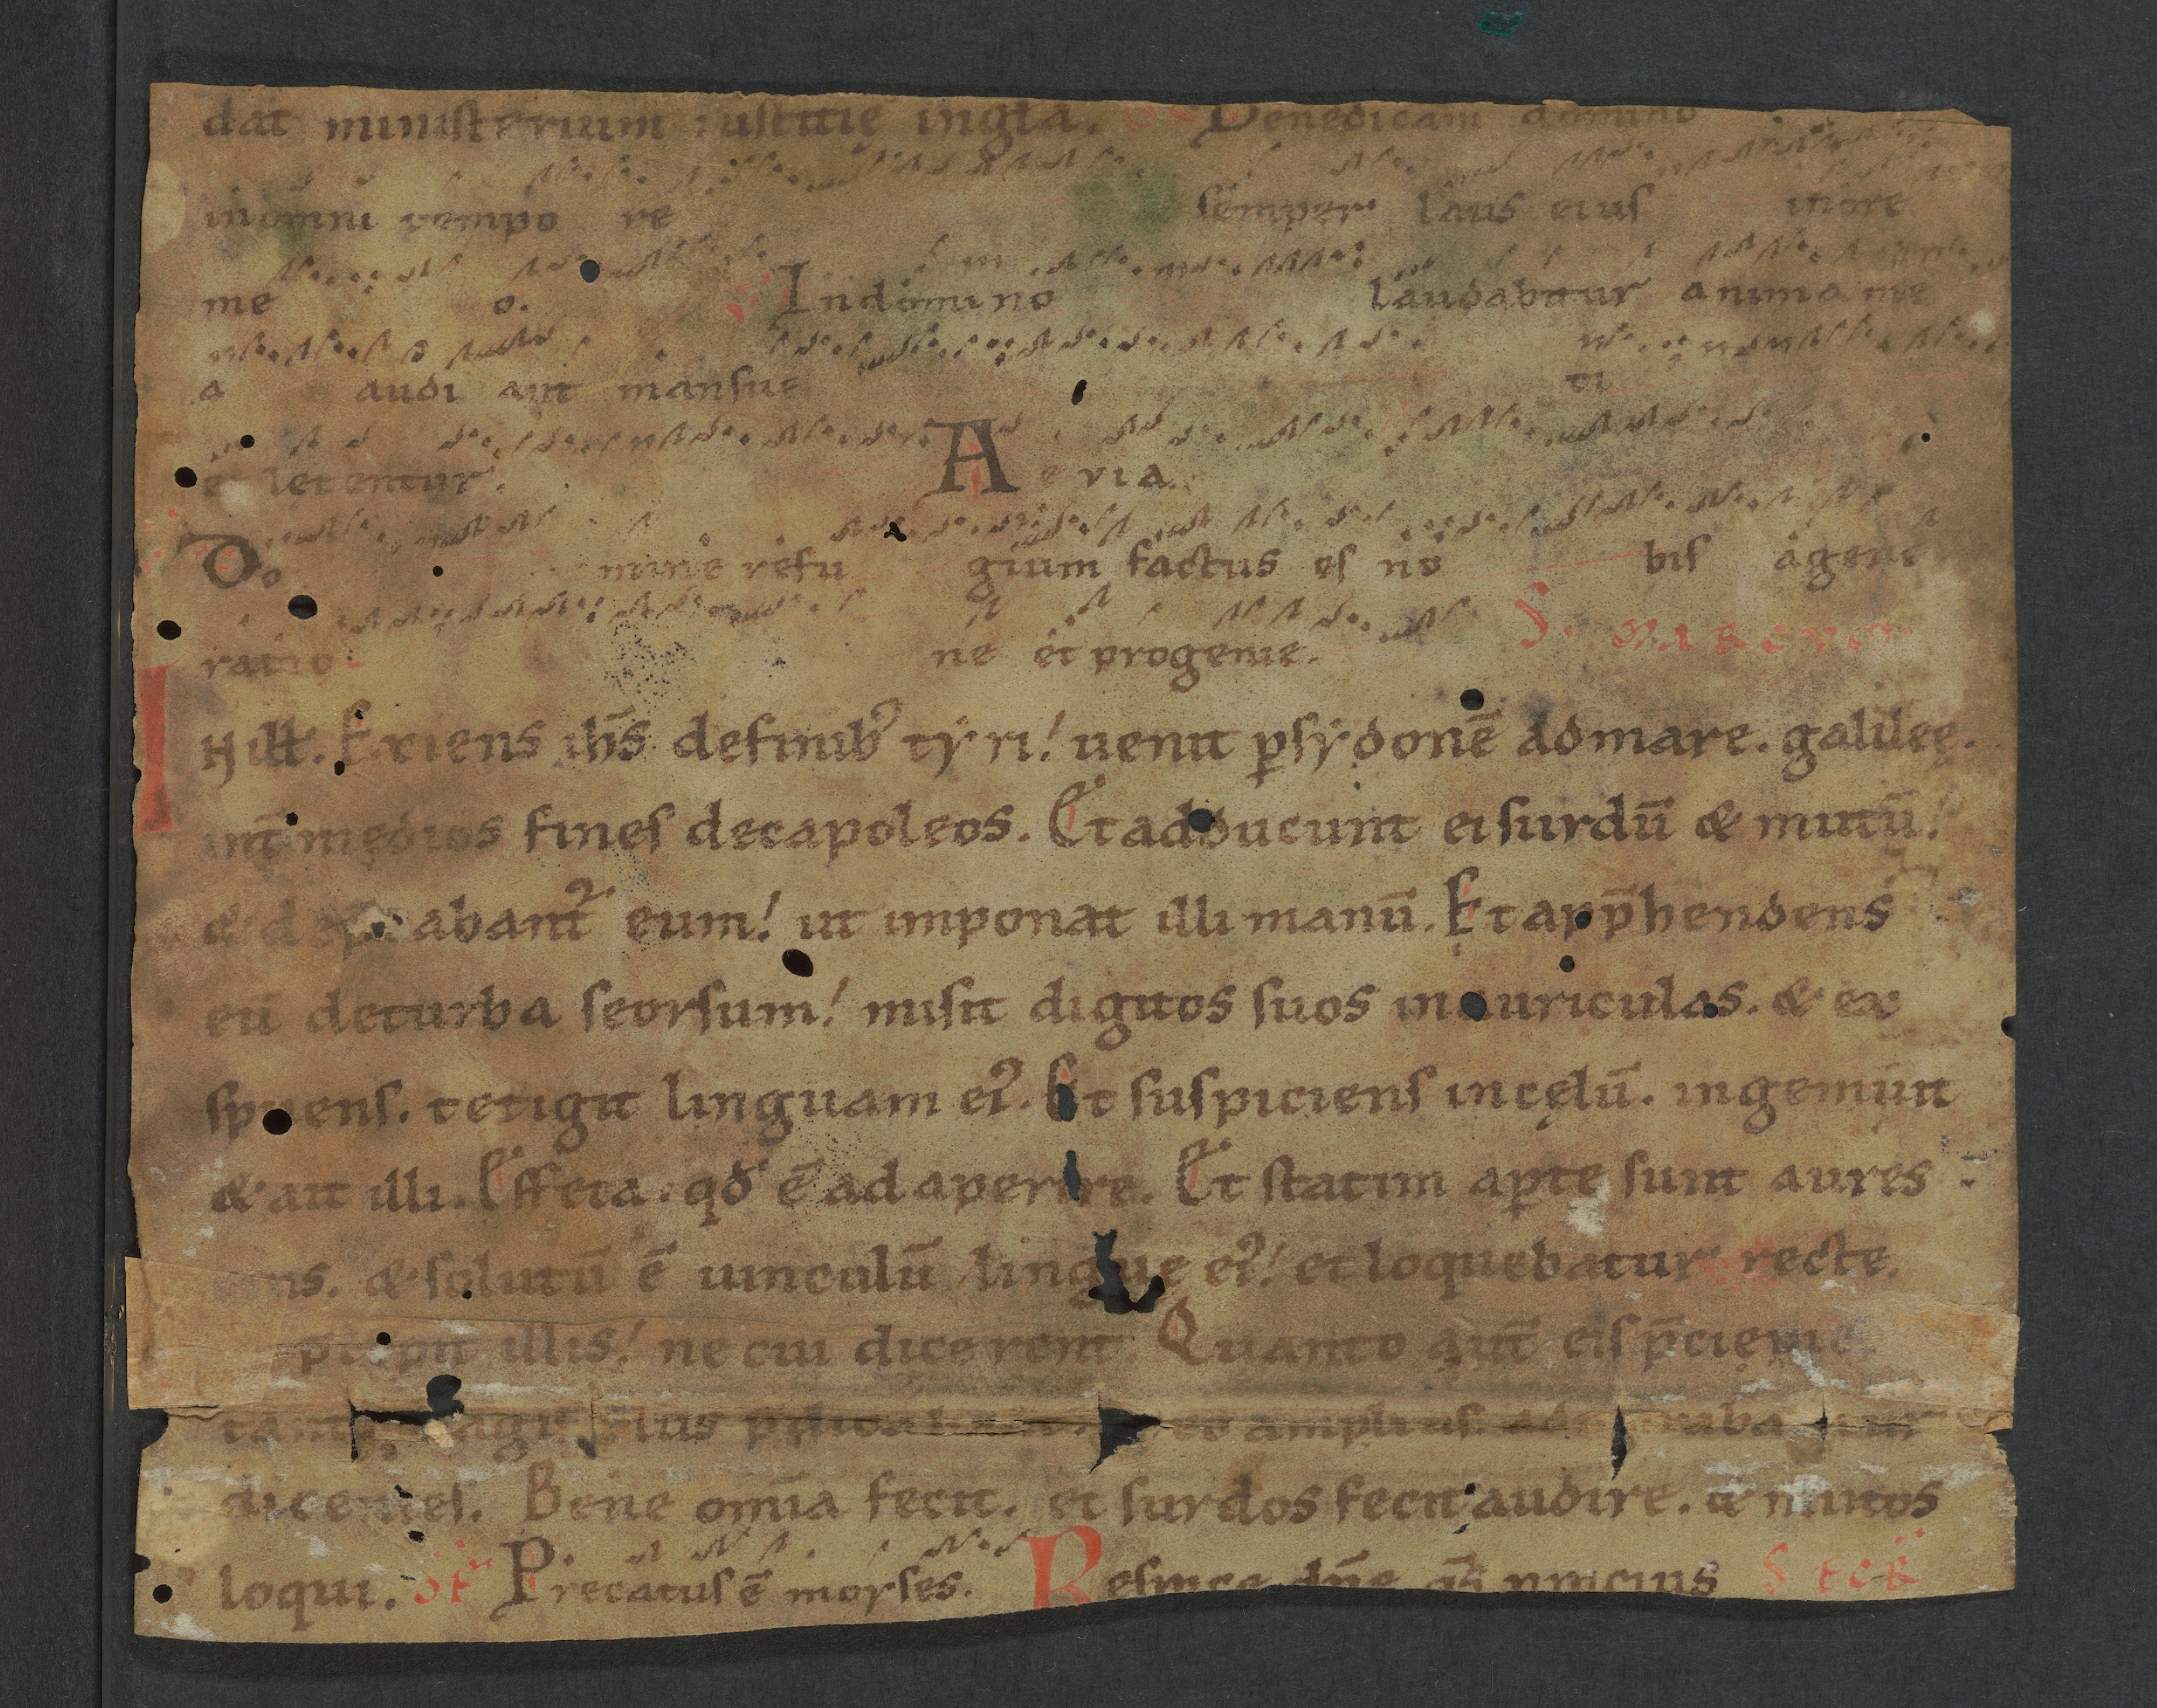 dat ministerium iustitie ingła. GRD Benedicam domino
inomni tempo re semper laus eius inore
me o. V Indomino laudabitur anima me
a audi ant mansue ti
et letentur. A e via.
Do mine refu gium factus es no bis agene
ratio ne et progenie. S. MARCVM.
IN illt. Exiens ih̄s definib᷒ tẏri! uenit ꝑsẏdonē admare. galileę.
int̄ medios fines decapoleos. Et adducunt ei surdū & mutū!
& dep̄cabant᷑ eum! ut imponat illi manū. Et app̄hendens
eū deturba seorsum! misit digitos suos inauriculas. & ex
spuens. tetigit linguam ei᷒. Et suspiciens incęlū. ingemuit
& ait illi. Effeta. qđ ē adaperire. Et statim aꝑte sunt aures
ius. & solutū ē uinculū lingue ei᷒! et loquebatur recte.
p̄cepit illis! ne cui dicerent. Quanto aut̄ eis p̄cipie
tanto magis plus p̄dicabant. eo amplius. admirabantur
dicentes. Bene om̄ia fecit. et surdos fecit audire. & mutos
loqui. OF Precatus ē moyses. Respice dn̄e qs̄ S ECR